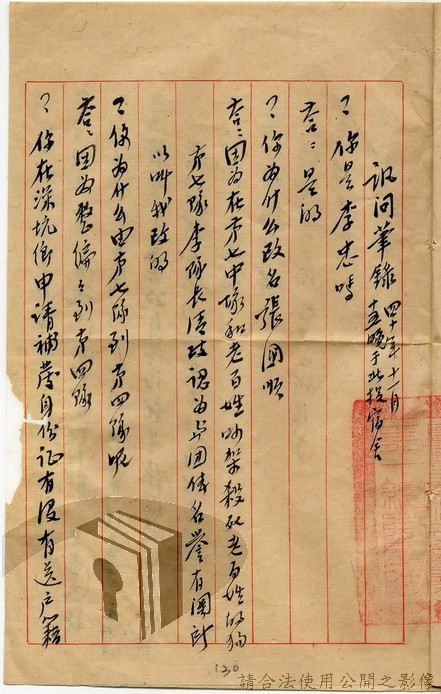 訊問筆錄 四十年十一月
十五晚于北投宿舍
問、你是李忠嗎
答：是的
問、你為什么改名張國順
答：因為在第七中隊和老百姓吵架殺死老百姓的狗
第七隊李隊長清政認為與團体名譽有関所
以叫我改的
問、你為什么由第七隊到第四隊呢
答：因為整编之到第四隊
問、你在深坑鄉申請補發身份证有没有送戶籍
130
請合法使用公開之影像